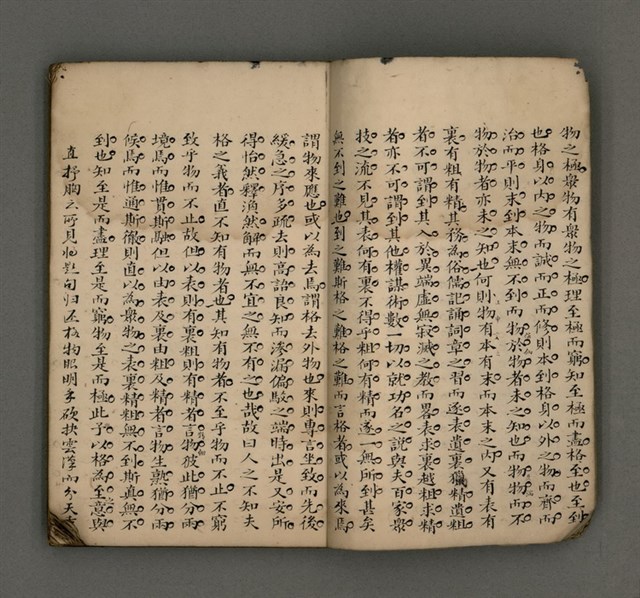 物之極衆物有衆物之極理至極而窮知至極而盡格至也至到
也格身以內之物而誠而正而修則本到格身以外之物而齊而
治而平則末到本末無不到而物於物者未之知也而物物而不
物於物者亦未之知也何則物有本有末而本末之內又有表有
裏有粗有精其務為俗儒記誦詞章之習而逐表遺裏獵精遺粗
者不可謂到其入於異端虛無寂滅之教而畧表求裏越粗求精
者亦不可謂到其他權謀術數一切以就功名之說與夫百家衆
技之流不見其表何有裏不得乎粗何有精而遂一無所到甚矣
無不到之難也到之難斯格之難格之難而言格者或以為來焉
謂物來應也或以為去焉謂格去外物也來則專言坐致而先後
緩急之序多疏去則高語良知而滲漏偏駁之端時出是又安所
得怡然釋渙然解而無不宜之無不有之也哉故曰人之不知夫
格之義者直不知有物者也其知有物者不至乎物而不止不窮
致乎物而不止故但以表則有裏粗則有精者言物彼此猶分兩
境焉而惟貫斯融但以由表及裏由粗及精者言物生熟猶分兩
候焉而惟通斯徹則直以為衆物之表裏精粗無不到斯真無不
到也知至是而盡理至是而窮物至是而極此予以格為至意與
直抒胸之所見怕題句归还格物照明手硕抉雲漢而分天